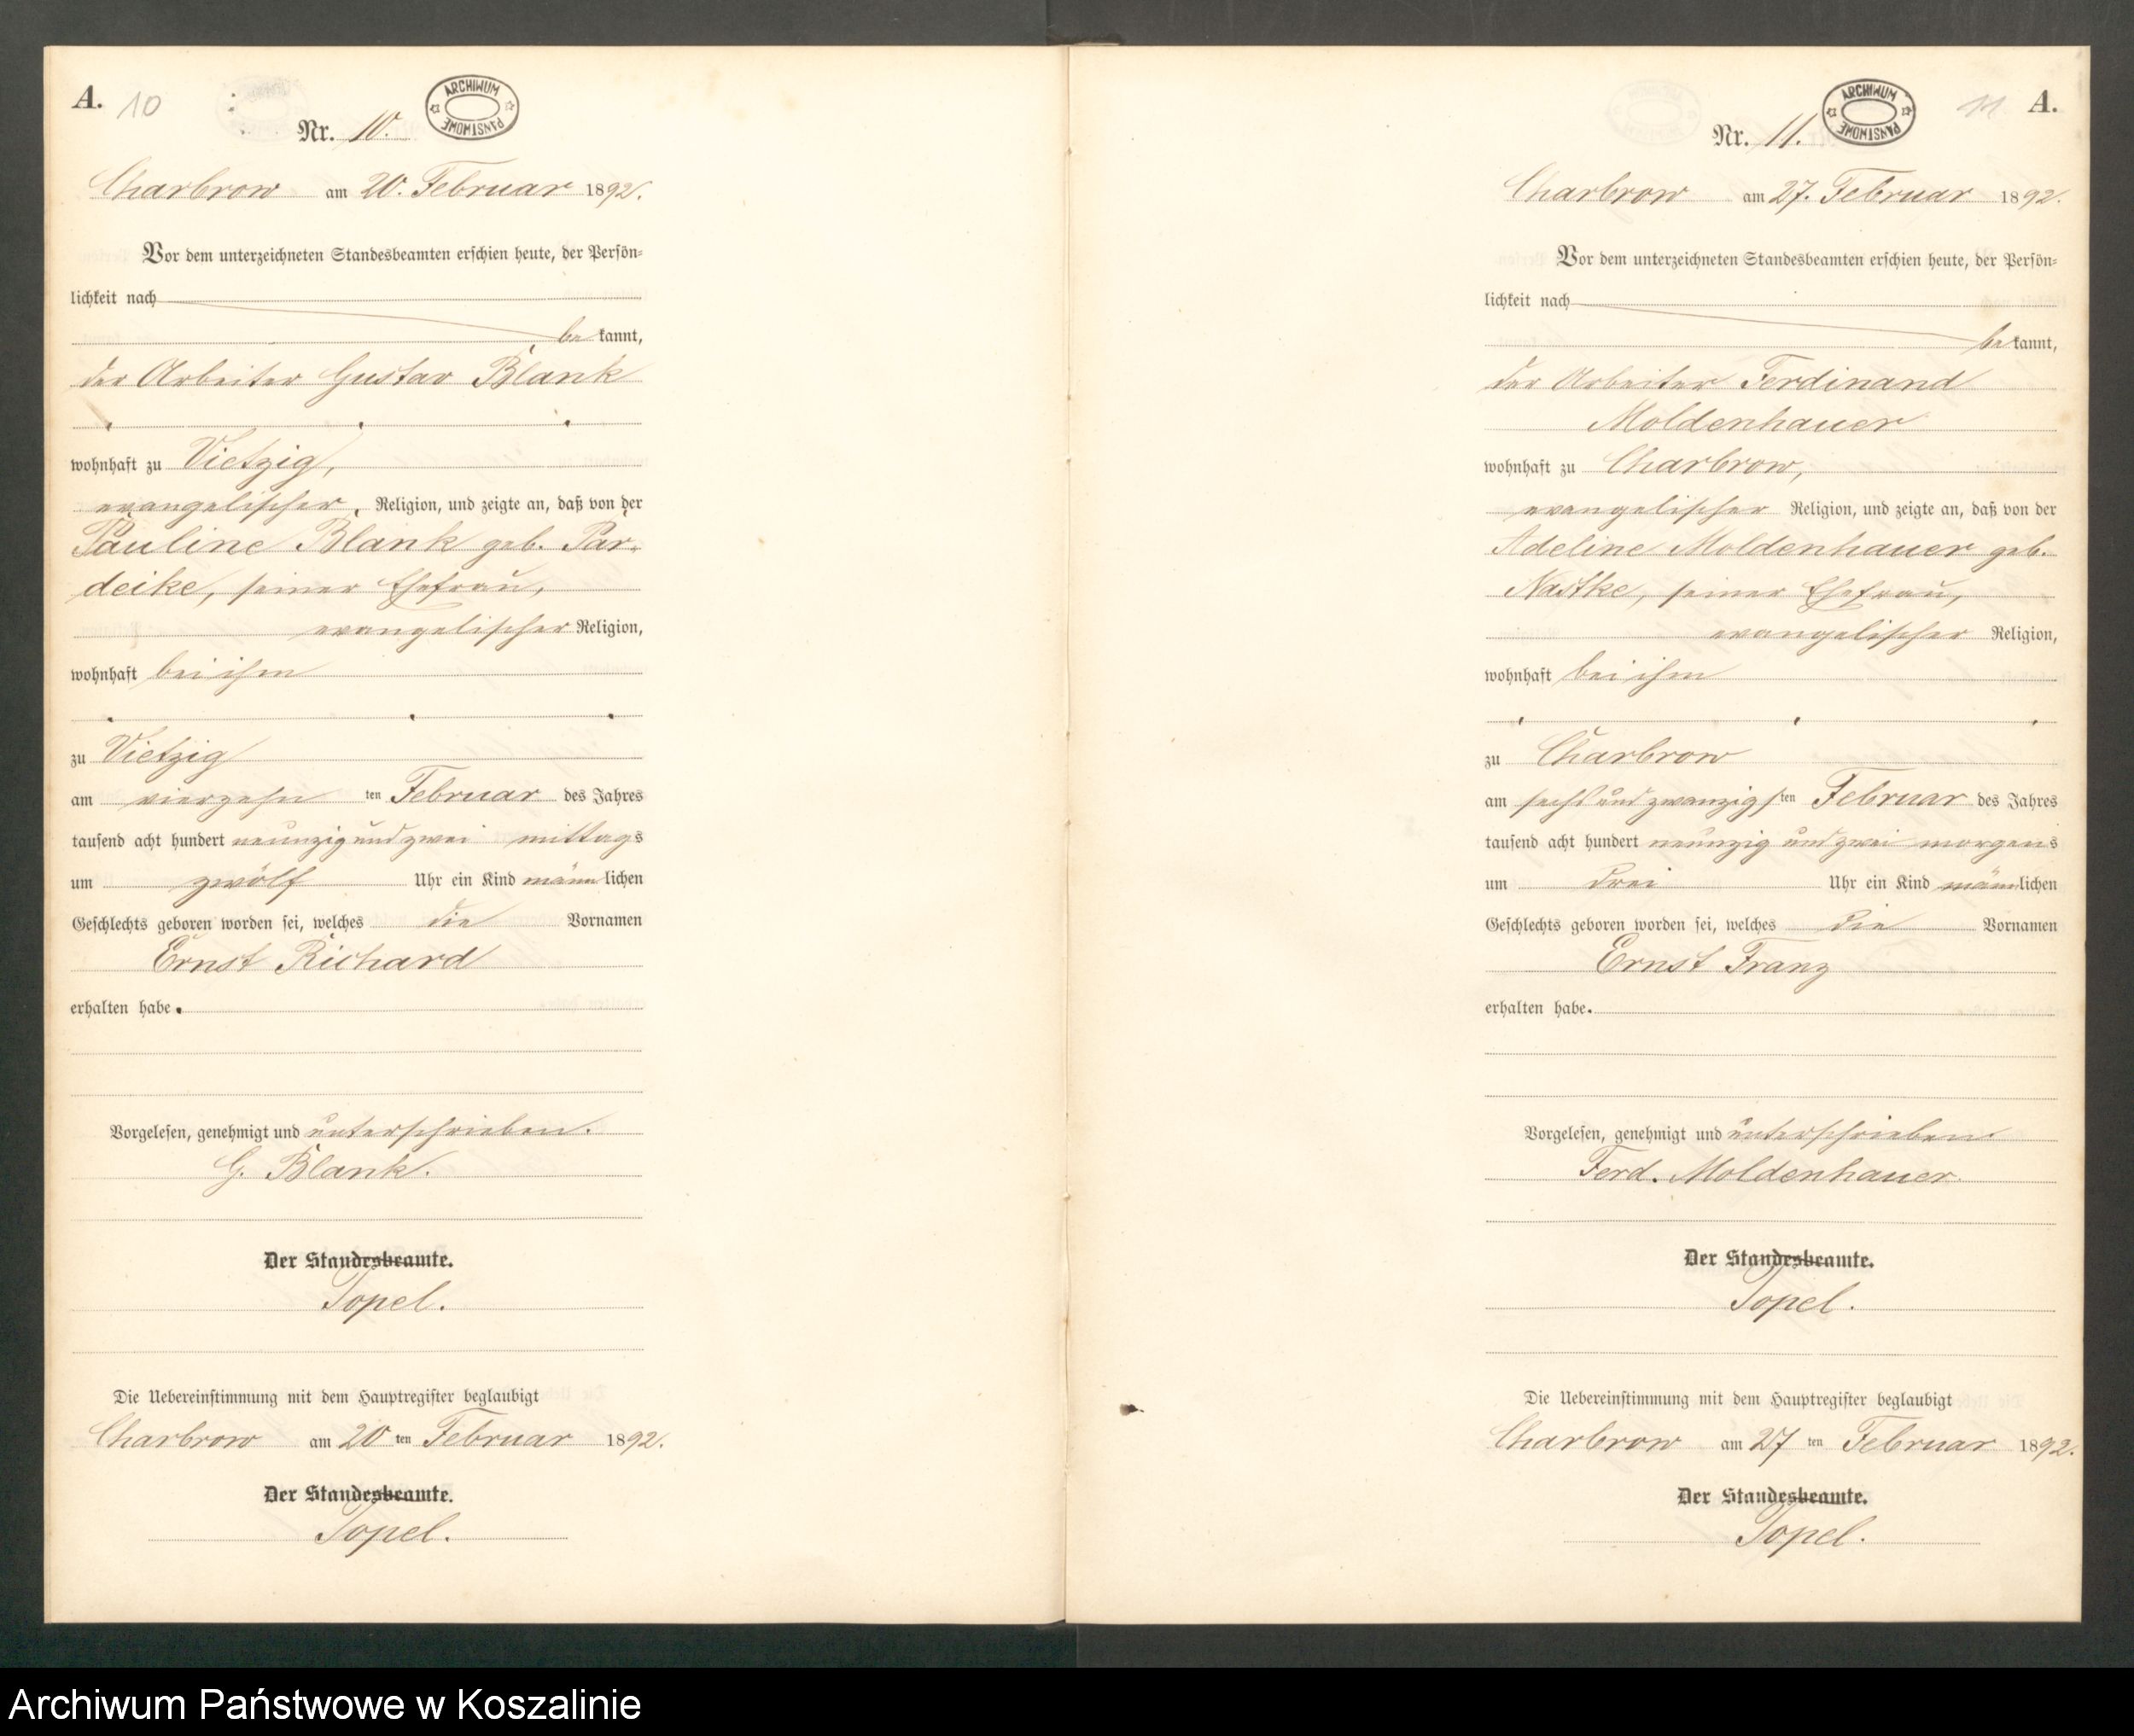 A. 10
ARCHIWUM PAŃSTWOWE
Nr. 10.
Charbrow am 20. Februar 1892.
Vor dem unterzeichneten Standesbeamten erschien heute, der Persön-
lichkeit nach
bekannt,
der Arbeiter Gustav Blank
wohnhaft zu Vietzig,
evangelischer Religion, und zeigte an, daß von der
Pauline Blank geb. Par-
deike, seiner Ehefrau,
evangelischer Religion,
wohnhaft bei ihm
zu Vietzig
am vierzehn ten Februar des Jahres
tausend acht hundert neunzig und zwei mittags
um zwölf Uhr ein Kind männlichen
Geschlechts geboren worden sei, welches die Vornamen
Ernst Richard
erhalten habe.
Vorgelesen, genehmigt und unterschrieben.
G. Blank.
Der Standesbeamte.
Topel.
Die Uebereinstimmung mit dem Hauptregister beglaubigt
Charbrow am 20 ten Februar 1892.
Der Standesbeamte.
Topel.
11 A.
ARCHIWUM PAŃSTWOWE
Nr. 11.
Charbrow am 27. Februar 1892.
Vor dem unterzeichneten Standesbeamten erschien heute, der Persön-
lichkeit nach
bekannt,
der Arbeiter Ferdinand
Moldenhauer
wohnhaft zu Charbrow,
evangelischer Religion, und zeigte an, daß von der
Adeline Moldenhauer geb.
Nastke, seiner Ehefrau,
evangelischer Religion,
wohnhaft bei ihm
zu Charbrow
am sechs und zwanzigsten Februar des Jahres
tausend acht hundert neunzig und zwei morgens
um drei Uhr ein Kind männlichen
Geschlechts geboren worden sei, welches die Vornamen
Ernst Franz
erhalten habe.
Vorgelesen, genehmigt und unterschrieben.
Ferd. Moldenhauer.
Der Standesbeamte.
Topel.
Die Uebereinstimmung mit dem Hauptregister beglaubigt
Charbrow am 27 ten Februar 1892.
Der Standesbeamte.
Topel.
Archiwum Państwowe w Koszalinie